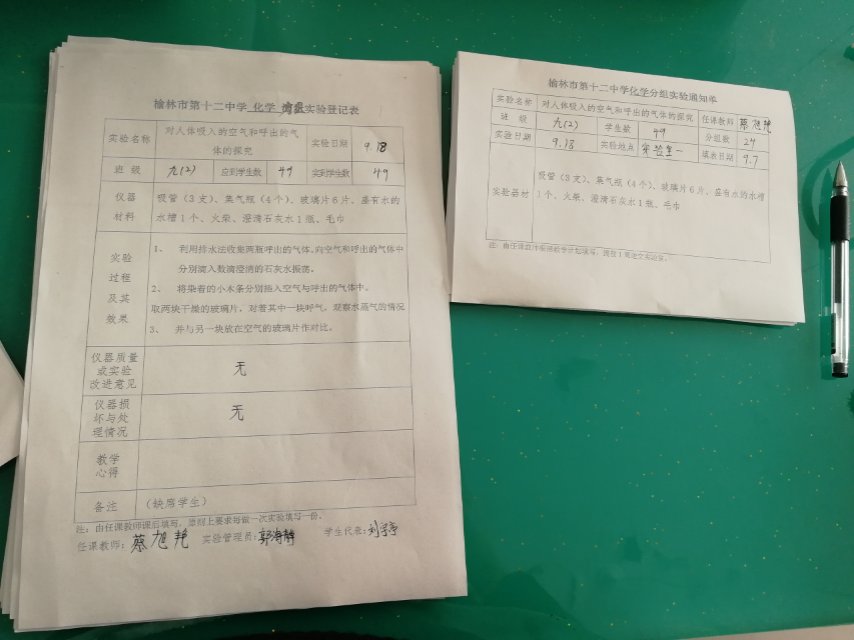 榆林市第十二中学 化学 实验登记表
实验名称
对人体吸入的空气和呼出的气
体的探究
实验日期
9.18
班 级
九(2)
应到学生数
49
实到学生数
49
仪器
材料
吸管（3支）、集气瓶（4个）、玻璃片6片、盛有水的
水槽1个、火柴、澄清石灰水1瓶、毛巾
实验
过程
及其
效果
1、 利用排水法收集两瓶呼出的气体。向空气和呼出的气体中
分别滴入数滴澄清的石灰水振荡。
2、 将燃着的小木条分别插入空气与呼出的气体中。
取两块干燥的玻璃片，对着其中一块呼气，观察水蒸气的情况
3、 并与另一块放在空气的玻璃片作对比。
仪器质量
或实验
改进意见
无
仪器损
坏与处
理情况
无
教学
心得
备注
（缺席学生）
注：由任课教师课后填写，原则上要求每做一次实验填写一份。
任课教师：蔡旭艳 实验管理员： 学生代表：
榆林市第十二中学化学分组实验通知单
实验名称
对人体吸入的空气和呼出的气体的探究
任课教师
蔡旭艳
班 级
九(2)
学生数
49
分组数
24
实验日期
9.18
实验地点
实验室一
填表日期
9.7
实验器材
吸管（3支）、集气瓶（4个）、玻璃片6片、盛有水的水槽
1个、火柴、澄清石灰水1瓶、毛巾